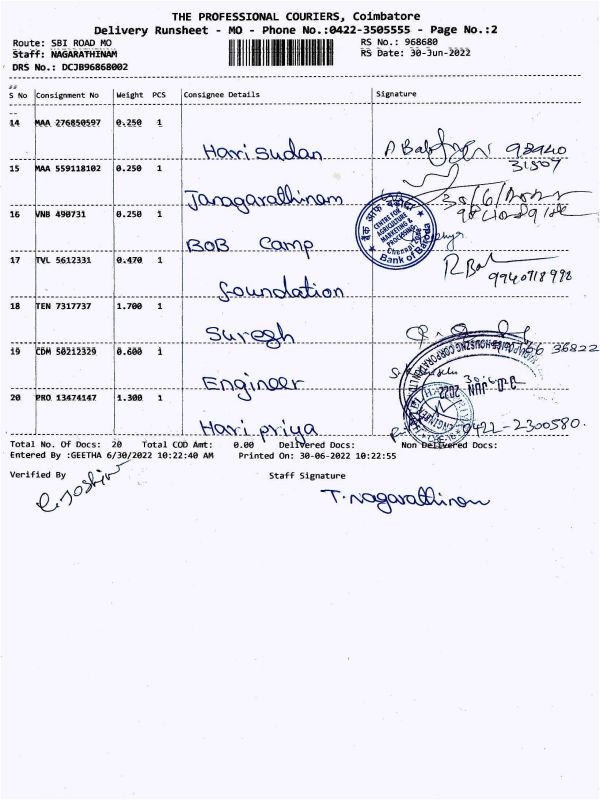 THE PROFESSIONAL COURIERS, Coimbatore
Delivery Runsheet - MO - Phone No.:0422-3505555 - Page No.:2
Route: SBI ROAD MO RS No.: 968680
Staff: NAGARATHINAM RS Date: 30-Jun-2022
DRS No.: DCJB96868002
S No Consignment No Weight PCS Consignee Details Signature
14 MAA 276850597 0.250 1
Hari sudan 98940
31507
15 MAA 559118102 0.250 1
Janagarathinam 30/6/
16 VNB 490731 0.250 1
BOB Camp
बैंक ऑफ़ बड़ौदा
CENTRE FOR
AGRICULTURE
MARKETING &
PROCESSING
Chennai Zone
Bank of Baroda
17 TVL 5612331 0.470 1
foundation 9940718998
18 TEN 7317737 1.700 1
Suresh 36822
19 CDM 50212329 0.600 1
Engineer
30 JUN 2022
20 PRO 13474147 1.300 1
Hari priya 0422-2300580.
Total No. Of Docs: 20 Total COD Amt: 0.00 Delivered Docs: Non Delivered Docs:
Entered By :GEETHA 6/30/2022 10:22:40 AM Printed On: 30-06-2022 10:22:55
Verified By Staff Signature
T. Nagarathinam